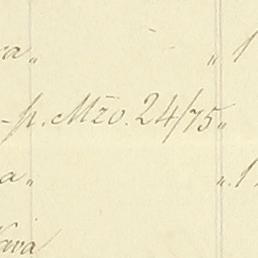 a „ „ 1
-p. Mzo. 24/75 „
a „ „ 1